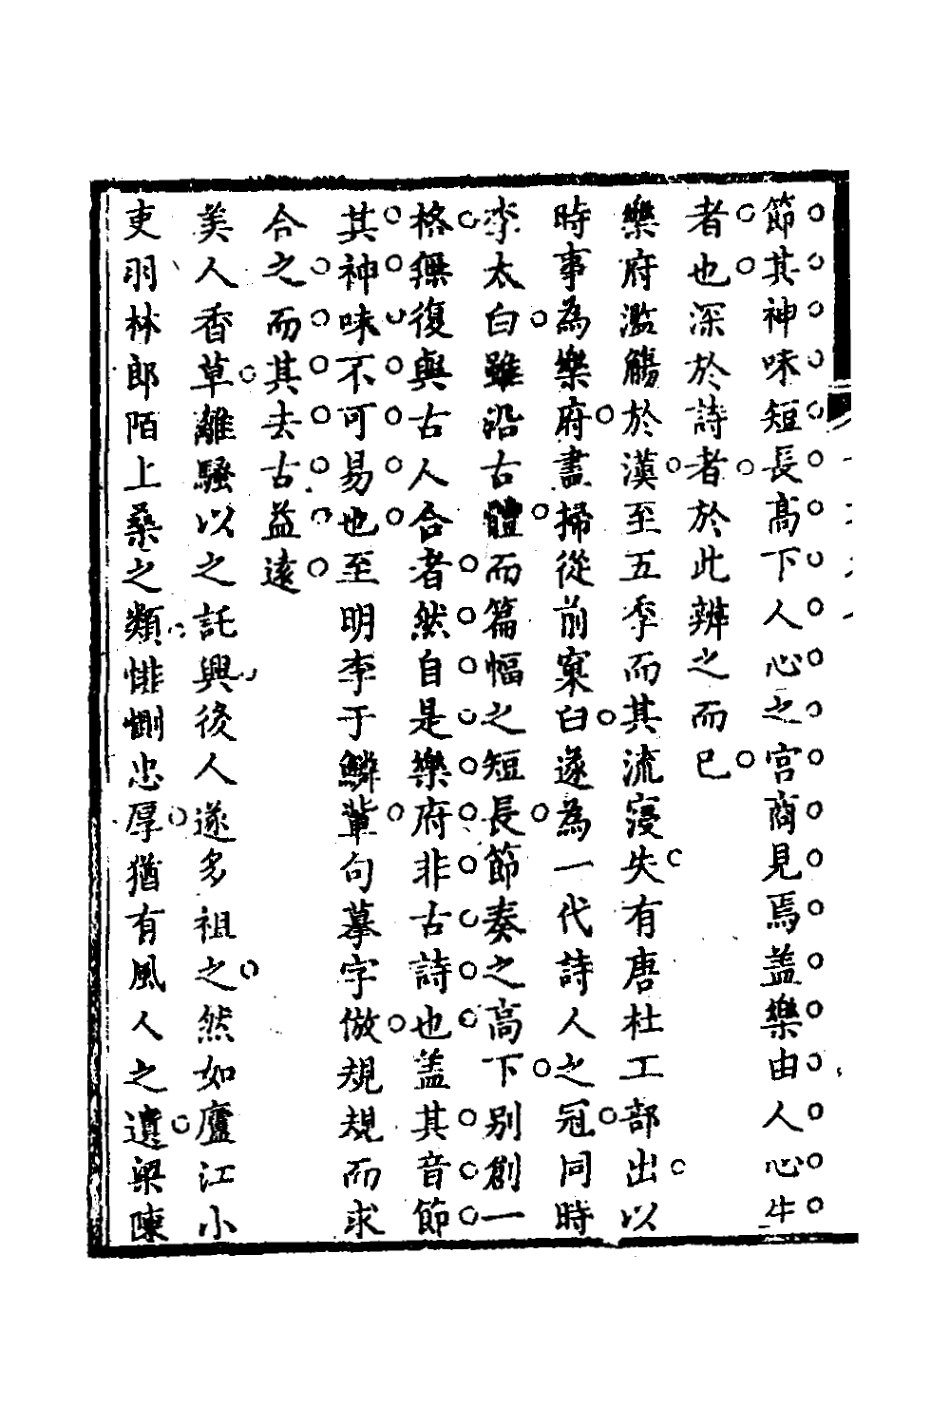 節其神味短長高下人心之宮商見焉盖樂由人心生
者也深於詩者於此辨之而已
樂府濫觴於漢至五季而其流寖失有唐杜工部出以
時事為樂府盡掃從前窠臼遂為一代詩人之冠同時
李太白雖沿古體而篇幅之短長節奏之高下別創一
格無復與古人合者然自是樂府非古詩也盖其音節
其神味不可易也至明李于鱗輩句摹字倣規規而求
合之而其去古益遠
美人香草離騷以之託興後人遂多祖之然如廬江小
吏羽林郎陌上桑之類悱惻忠厚猶有風人之遺梁陳